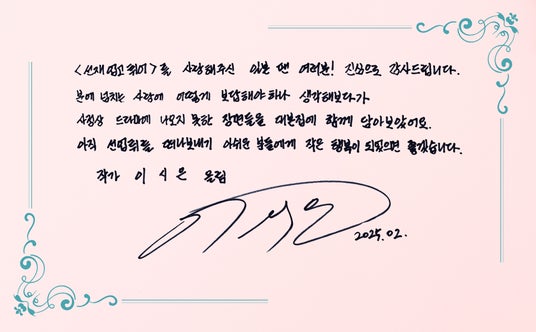 <선재 업고 튀어>를 사랑해주신 일본 팬 여러분! 진심으로 감사드립니다.
분에 넘치는 사랑에 어떻게 보답해야 하나 생각해보다가
사정상 드라마에 나오지 못한 장면들을 대본집에 함께 담아보았어요.
아직 선업튀를 떠나보내기 아쉬운 분들에게 작은 행복이 되었으면 좋겠습니다.
작가 이 시 은 올림
이시은
2025.02.